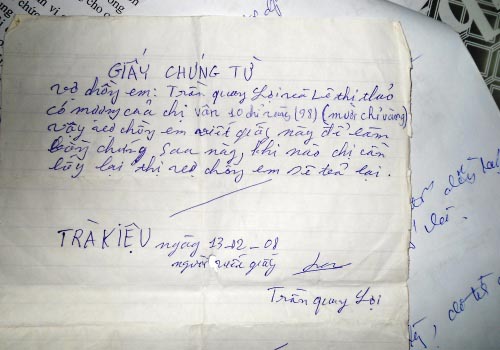 GIẤY CHỨNG TỪ
vợ chồng em: Trần quay Lợi và Lê thị thảo
có mượn của chị vân 10 chỉ vàng (98) (mười chỉ vàng)
vậy vợ chồng em viết giấy này để làm
bằng chứng sau này, khi nào chị cần
lấy lại thì vợ chồng em sẽ trả lại.
TRÀ KIỆU ngày 13-02-08
người viết giấy
Trần quay Lợi